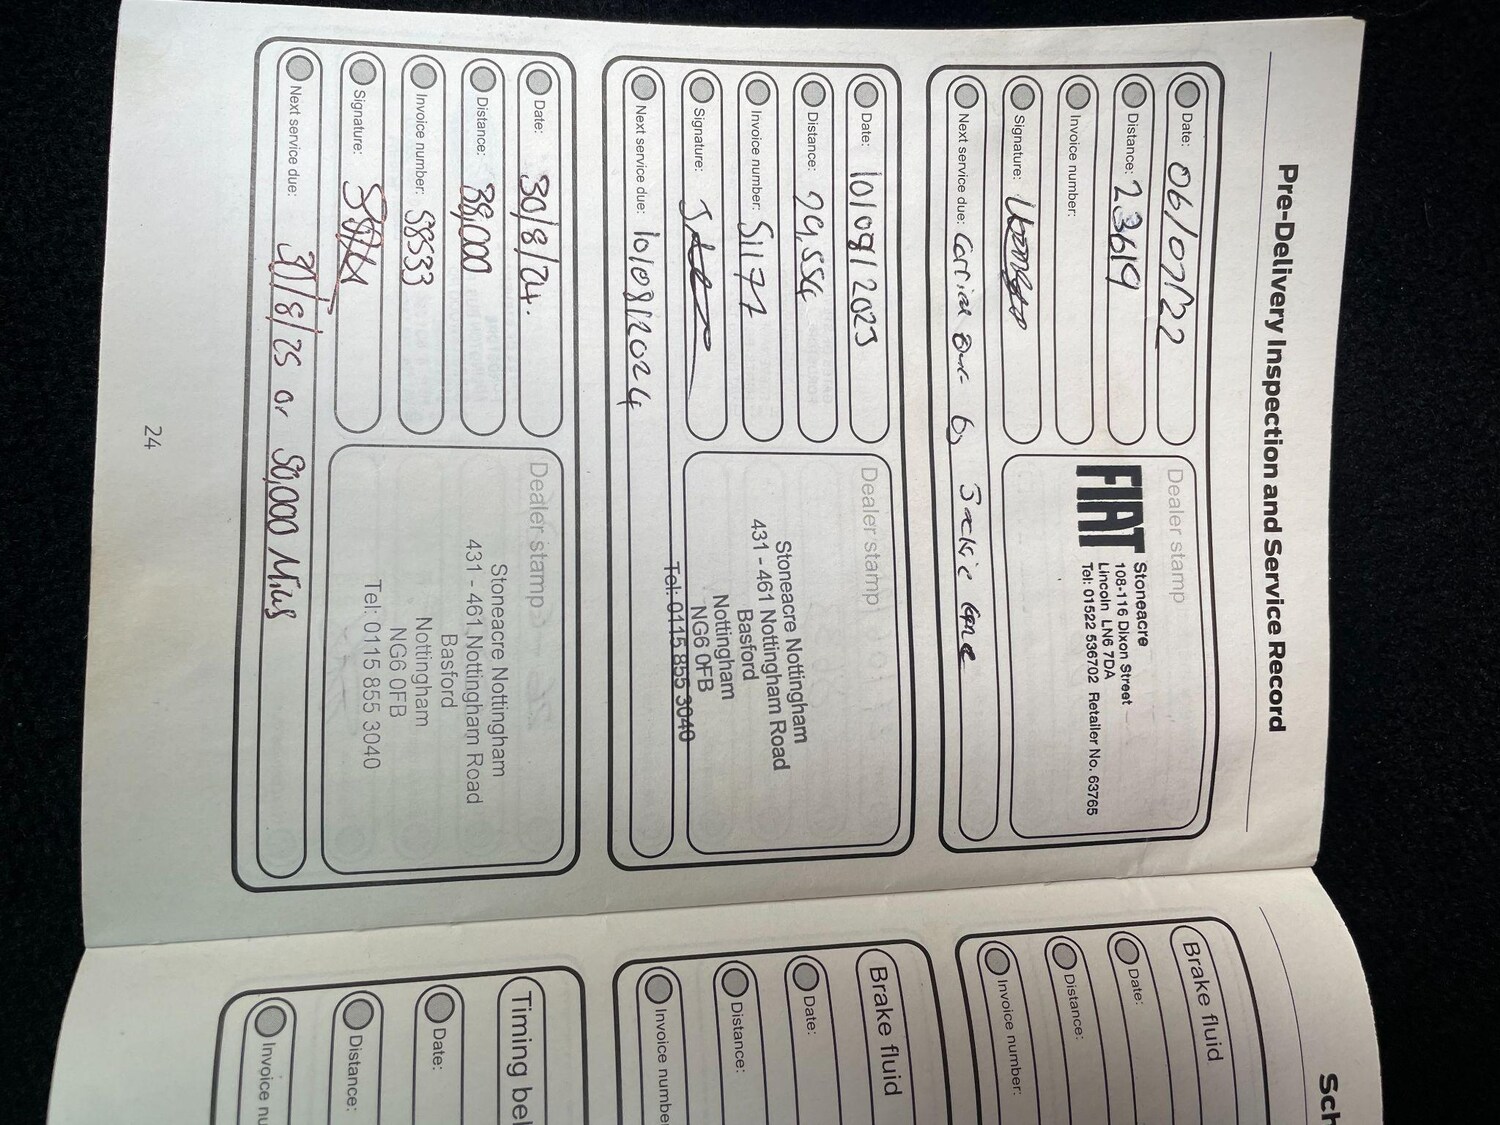 Pre-Delivery Inspection and Service Record
Date: 06/07/22
Distance: 23619
Invoice number:
Signature:
Next service due: Carried out by Jackie Lane
Dealer stamp
FIAT
Stoneacre
108-116 Dixon Street
Lincoln LN6 7DA
Tel: 01522 536702 Retailer No. 63765
Date: 10/08/2023
Distance: 29,554
Invoice number: 51171
Signature:
Next service due: 10/08/2024
Dealer stamp
Stoneacre Nottingham
431 - 461 Nottingham Road
Basford
Nottingham
NG6 0FB
Tel: 0115 855 3040
Date: 30/8/24.
Distance: 38,000
Invoice number: 58533
Signature:
Next service due: 31/8/25 or 50,000 Miles
Dealer stamp
Stoneacre Nottingham
431 - 461 Nottingham Road
Basford
Nottingham
NG6 0FB
Tel: 0115 855 3040
24
Sch
Brake fluid
Date:
Distance:
Invoice number:
Brake fluid
Date:
Distance:
Invoice number
Timing bel
Date:
Distance:
Invoice nu